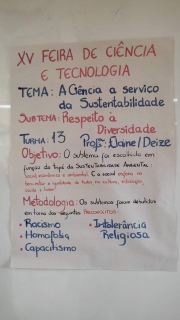 XV FEIRA DE CIÊNCIA
E TECNOLOGIA
TEMA: A Ciência a serviço
da Sustentabilidade
SUBTEMA: Respeito à
Diversidade
TURMA: 13 Profs: Daine/Deize
Objetivo: O subtema foi escolhido em
função do tripé da SUSTENTABILIDADE AMBIENTAL:
Social, econômico e ambiental. E o social
bem estar e igualdade de todos, na cultura, educação,
saúde e lazer
Metodologia: Os subtemas foram debatidos
em torno dos seguintes PRECONCEITOS:
• Racismo • Intolerância
• Homofobia Religiosa
• Capacitismo